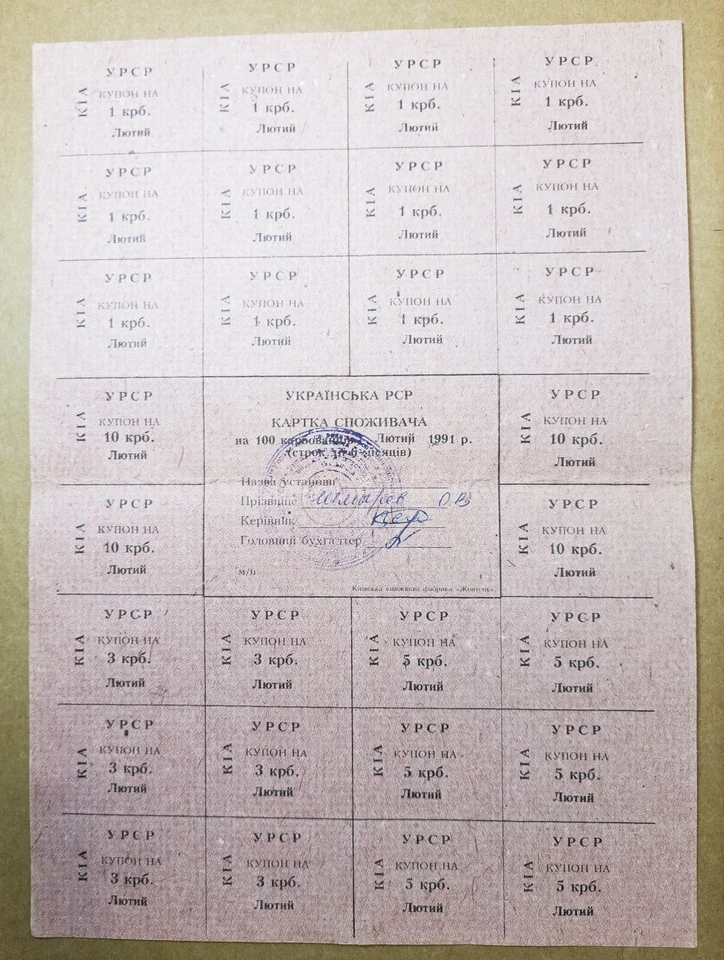 УРСР
КІА
КУПОН НА
1 крб.
Лютий
УРСР
КІА
КУПОН НА
1 крб.
Лютий
УРСР
КІА
КУПОН НА
1 крб.
Лютий
УРСР
КІА
КУПОН НА
1 крб.
Лютий
УРСР
КІА
КУПОН НА
1 крб.
Лютий
УРСР
КІА
КУПОН НА
1 крб.
Лютий
УРСР
КІА
КУПОН НА
1 крб.
Лютий
УРСР
КІА
КУПОН НА
1 крб.
Лютий
УРСР
КІА
КУПОН НА
1 крб.
Лютий
УРСР
КІА
КУПОН НА
1 крб.
Лютий
УРСР
КІА
КУПОН НА
1 крб.
Лютий
УРСР
КІА
КУПОН НА
1 крб.
Лютий
УРСР
КІА
КУПОН НА
10 крб.
Лютий
УКРАЇНСЬКА РСР
КАРТКА СПОЖИВАЧА
на 100 карбованців Лютий 1991 р.
(строк до 6 місяців)
Назва установи
Прізвище
Керівник
Головний бухгалтер
м/п
Київська книжкова фабрика «Жовтень»
УРСР
КІА
КУПОН НА
10 крб.
Лютий
УРСР
КІА
КУПОН НА
10 крб.
Лютий
УРСР
КІА
КУПОН НА
10 крб.
Лютий
УРСР
КІА
КУПОН НА
3 крб.
Лютий
УРСР
КІА
КУПОН НА
3 крб.
Лютий
УРСР
КІА
КУПОН НА
5 крб.
Лютий
УРСР
КІА
КУПОН НА
5 крб.
Лютий
УРСР
КІА
КУПОН НА
3 крб.
Лютий
УРСР
КІА
КУПОН НА
3 крб.
Лютий
УРСР
КІА
КУПОН НА
5 крб.
Лютий
УРСР
КІА
КУПОН НА
5 крб.
Лютий
УРСР
КІА
КУПОН НА
3 крб.
Лютий
УРСР
КІА
КУПОН НА
3 крб.
Лютий
УРСР
КІА
КУПОН НА
5 крб.
Лютий
УРСР
КІА
КУПОН НА
5 крб.
Лютий